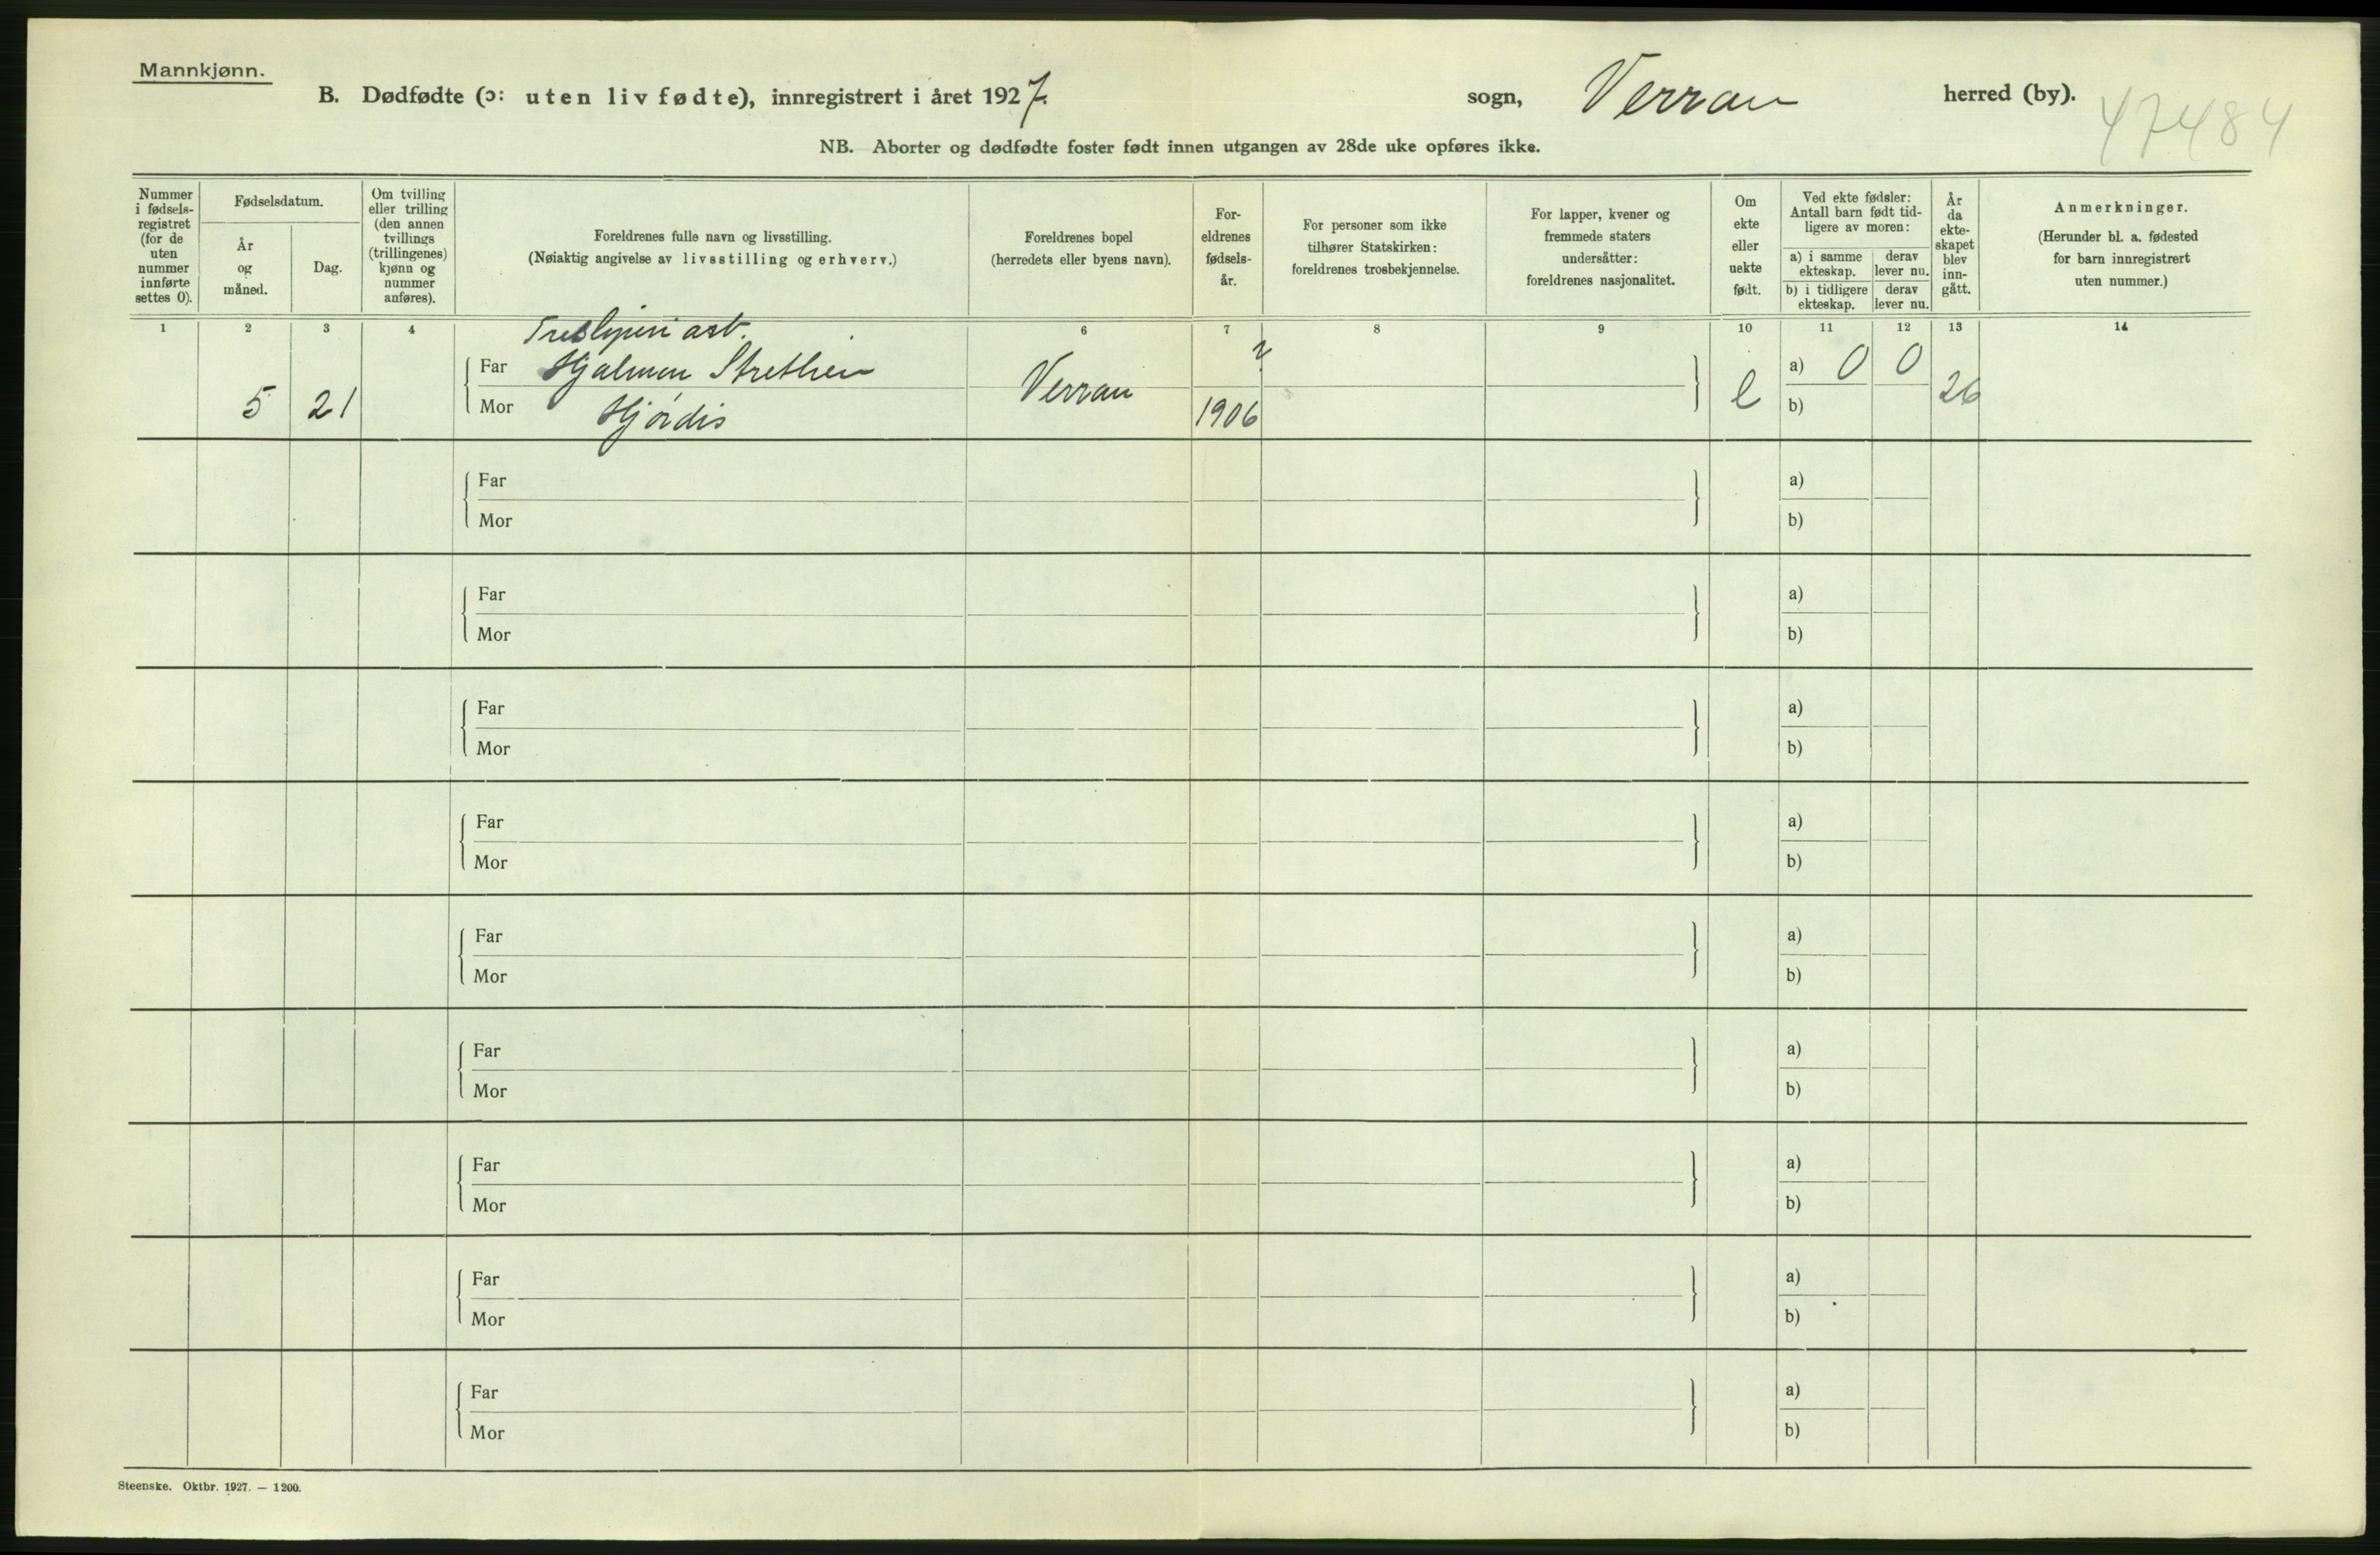 Mannkjønn.
B. Dødfødte (ɔ: uten liv fødte), innregistrert i året 1927. sogn, Verran herred (by).
47484
NB. Aborter og dødfødte foster født innen utgangen av 28de uke opføres ikke.
Nummer i fødsels-registret (for de uten nummer innførte settes 0).
Fødselsdatum.
År og måned.
Dag.
Om tvilling eller trilling (den annen tvillings (trillingenes) kjønn og nummer anføres).
Foreldrenes fulle navn og livsstilling.
(Nøiaktig angivelse av livsstilling og erhverv.)
Foreldrenes bopel
(herredets eller byens navn).
For-eldrenes fødsels-år.
For personer som ikke tilhører Statskirken: foreldrenes trosbekjennelse.
For lapper, kvener og fremmede staters undersåtter: foreldrenes nasjonalitet.
Om ekte eller uekte født.
Ved ekte fødsler: Antall barn født tid-ligere av moren:
a) i samme ekteskap.
derav lever nu.
b) i tidligere ekteskap.
derav lever nu.
År da ekte-skapet blev inn-gått.
Anmerkninger.
(Herunder bl. a. fødested for barn innregistrert uten nummer.)
1 2 3 4 6 7 8 9 10 11 12 13 14
Tresliperi arb.
Far Hjalmar ?
a) 0 0
5 21 Verran e 26
Mor Hjørdis 1906
b)
Far a)
Mor b)
Far a)
Mor b)
Far a)
Mor b)
Far a)
Mor b)
Far a)
Mor b)
Far a)
Mor b)
Far a)
Mor b)
Far a)
Mor b)
Far a)
Mor b)
Steenske. Oktbr. 1927. — 1200.